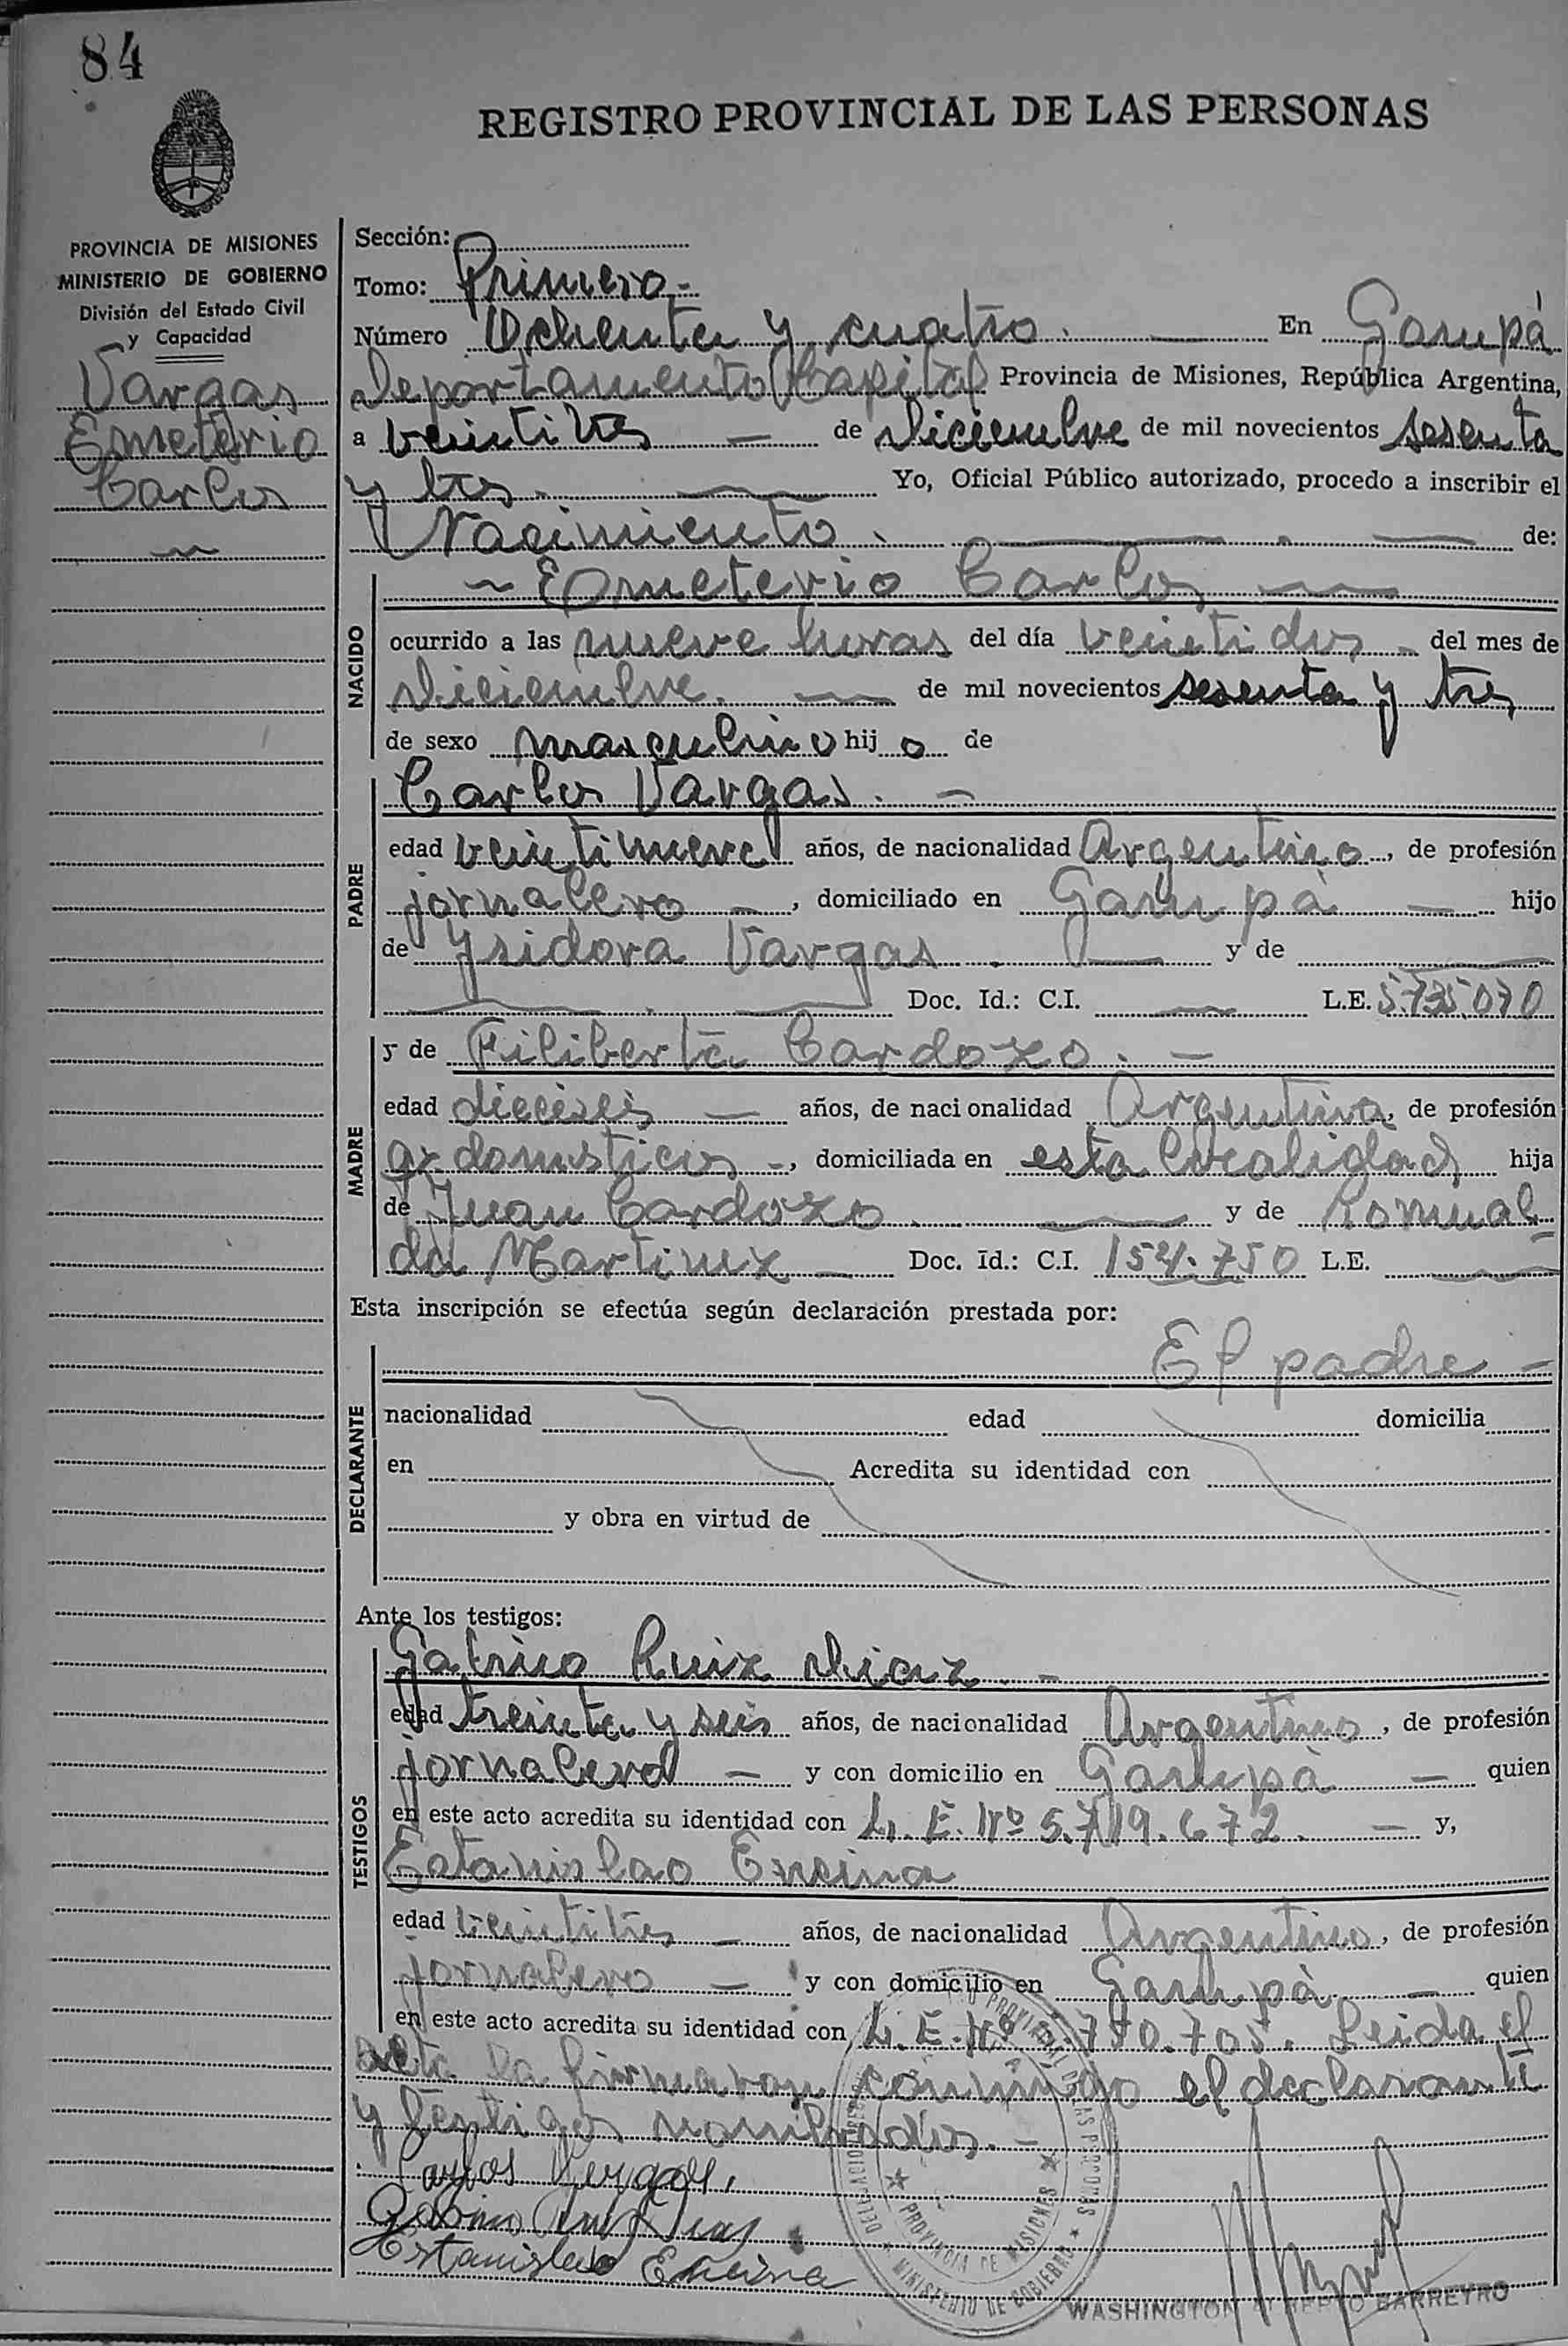 84
REGISTRO PROVINCIAL DE LAS PERSONAS
PROVINCIA DE MISIONES
MINISTERIO DE GOBIERNO
División del Estado Civil
y Capacidad
Vargas
Emeterio
Carlos
Sección:
Tomo: Primero.-
Número Ochenta y cuatro. En Garupá
Departamento Capital Provincia de Misiones, República Argentina,
a veintitres de diciembre de mil novecientos sesenta
y tres. Yo, Oficial Público autorizado, procedo a inscribir el
Nacimiento. de:
NACIDO
Emeterio Carlos
ocurrido a las nueve horas del día veintidos del mes de
diciembre. de mil novecientos sesenta y tres
de sexo masculino hij o de
PADRE
Carlos Vargas.
edad veintinueve años, de nacionalidad Argentino, de profesión
jornalero, domiciliado en Garupá hijo
de Ysidora Vargas. y de
Doc. Id.: C.I. L.E. 5.735.070
MADRE
y de Filiberta Cardozo.
edad dieciseis años, de nacionalidad Argentina, de profesión
q. domesticos, domiciliada en esta localidad hija
de Juan Cardozo y de Romual
da Martinez Doc. Id.: C.I. 154.750 L.E.
Esta inscripción se efectúa según declaración prestada por:
DECLARANTE
El padre
nacionalidad edad domicilia
en Acredita su identidad con
y obra en virtud de
Ante los testigos:
TESTIGOS
Gabino Ruiz Diaz.
edad treinta y seis años, de nacionalidad Argentino, de profesión
jornalero y con domicilio en Garupá quien
en este acto acredita su identidad con L. E. Nº 5.719.672. y,
Estanislao Encina
edad veintitres años, de nacionalidad Argentino, de profesión
jornalero y con domicilio en Garupá quien
en este acto acredita su identidad con L. E. Nº 750.705. Leida el
acta la firmaron conmigo el declarante
y testigos nombrados.
Carlos Vargas.
Gabino Ruiz Diaz
Estanislao Encina
PROVINCIAL DE LAS PERSONAS
MINISTERIO DE GOBIERNO
PROVINCIA DE MISIONES
WASHINGTON BARREYRO